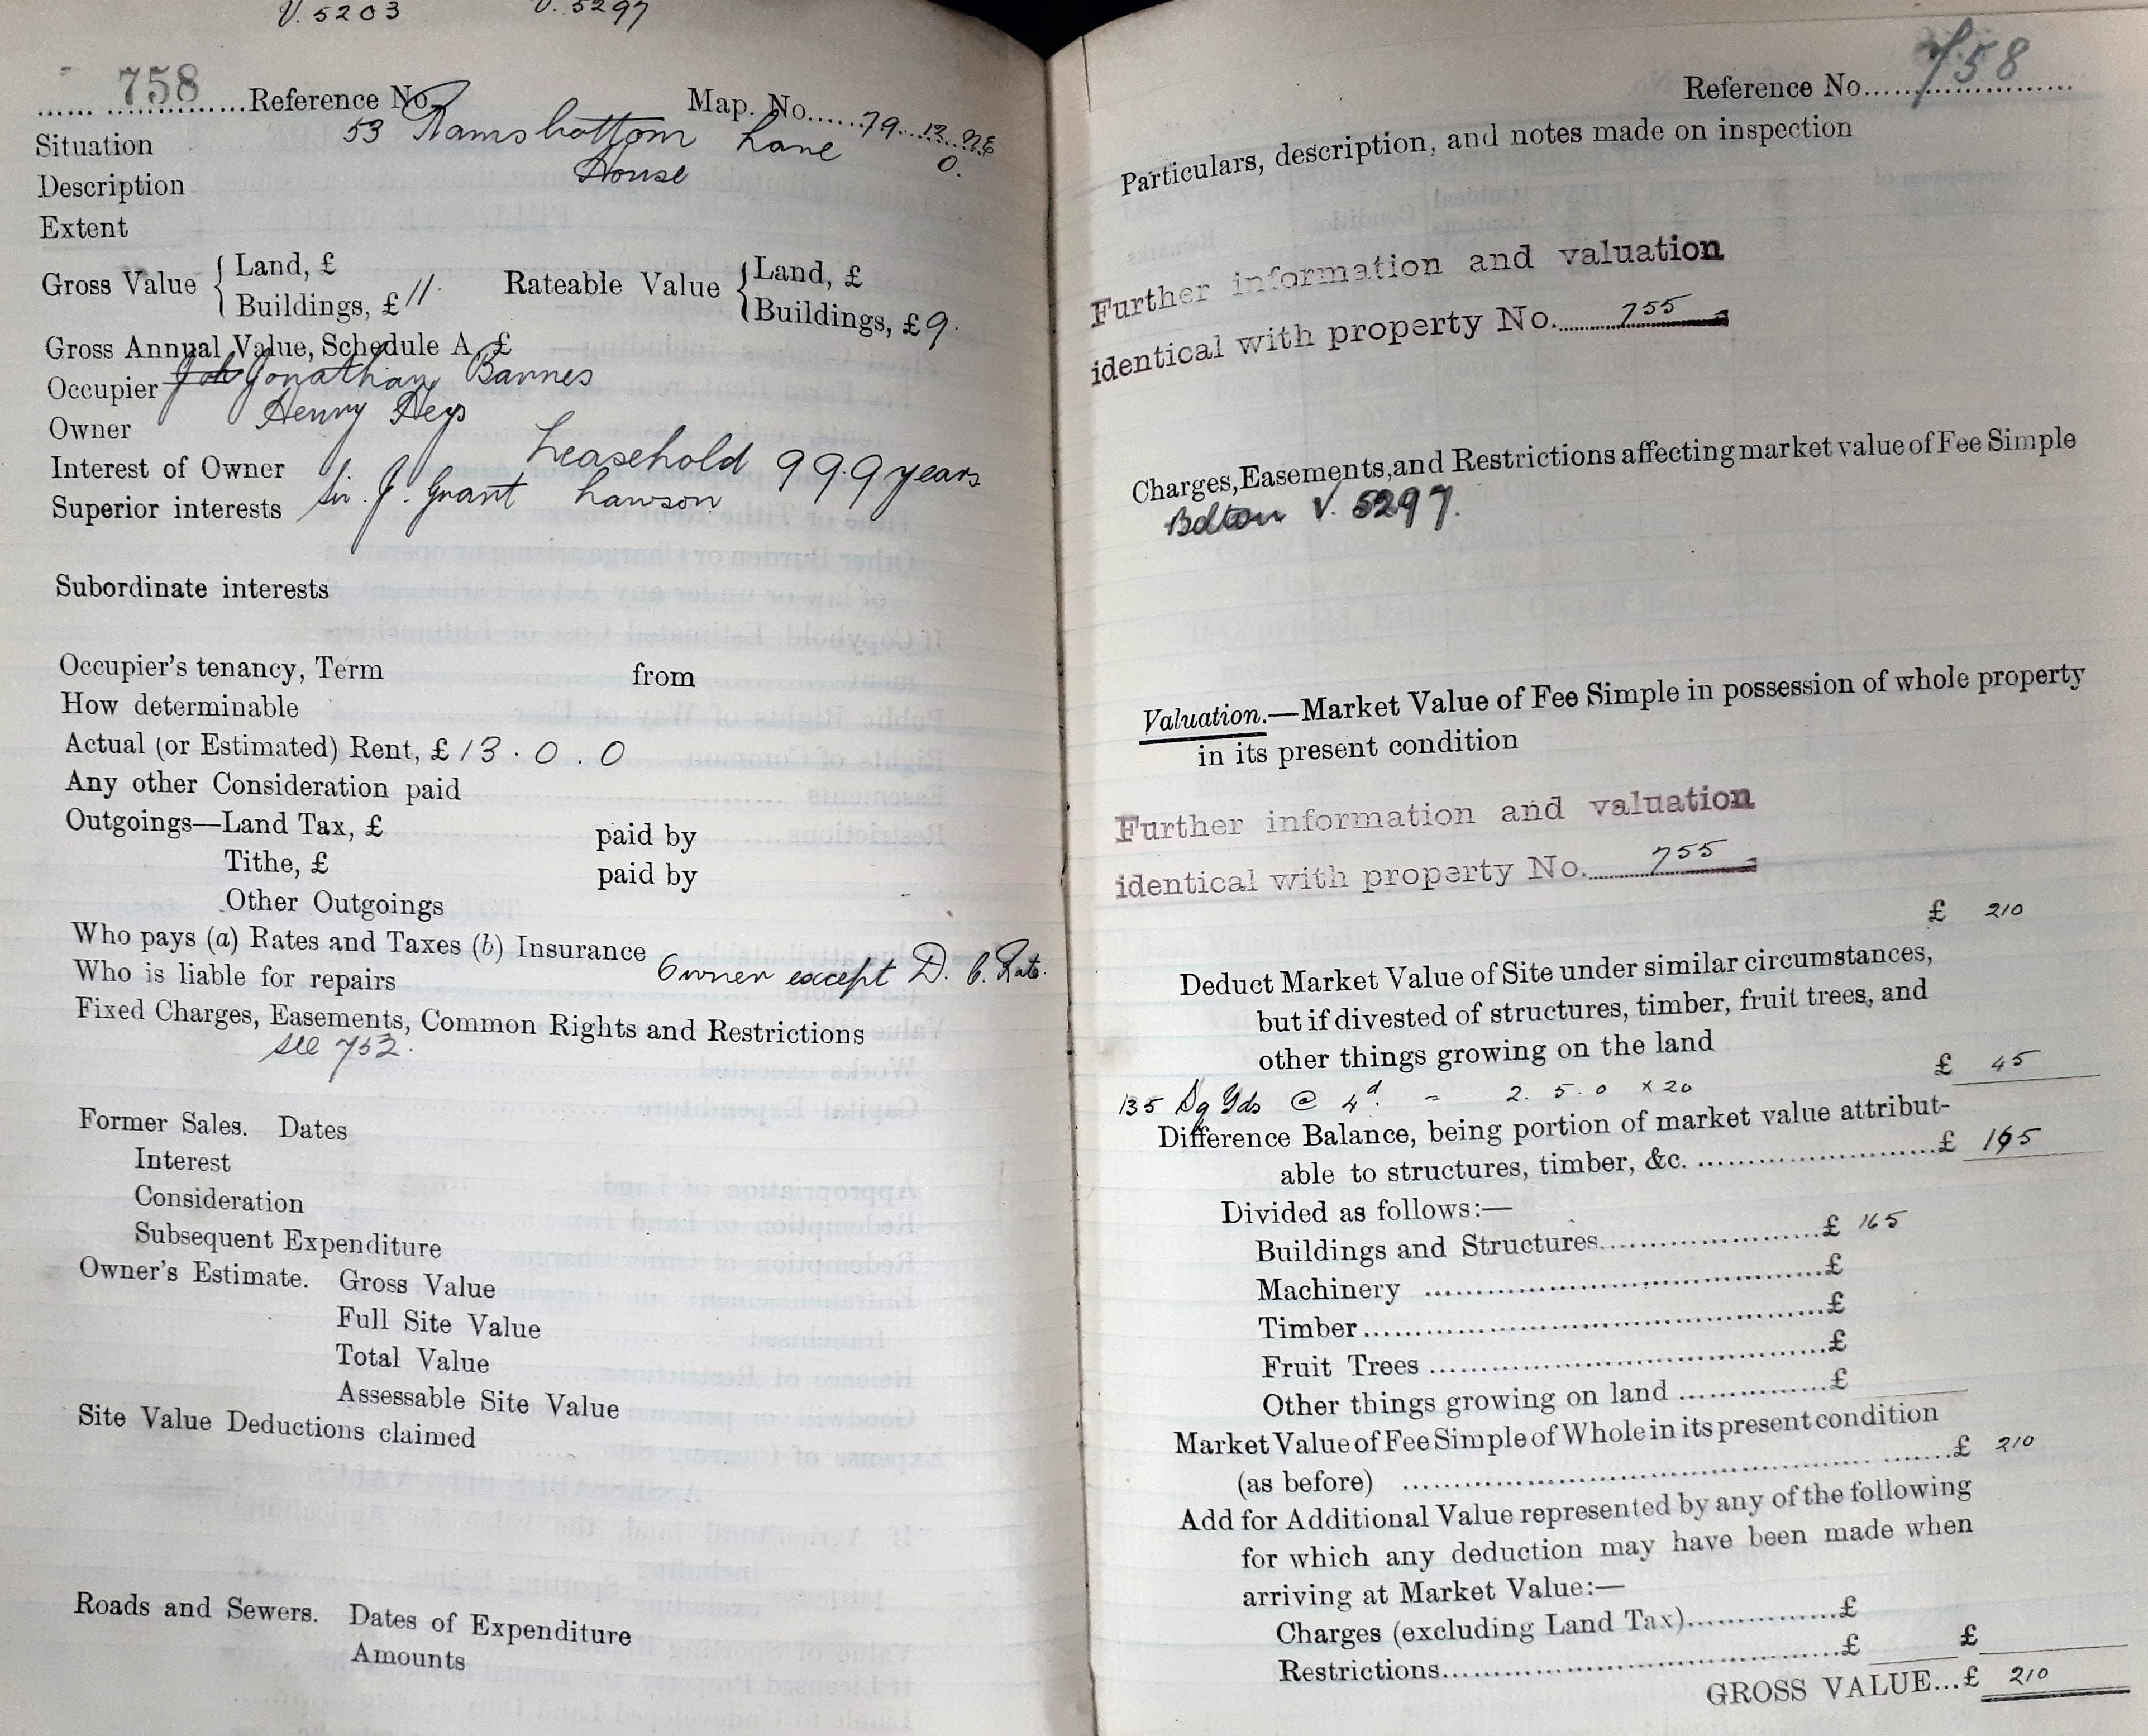 V. 5203 V. 5297
758 Reference No. Map. No. 79. 13. NE
Situation 53 Ramsbottom Lane O.
Description House
Extent
Gross Value { Land, £ Rateable Value { Land, £
Buildings, £ 11. Buildings, £ 9.
Gross Annual Value, Schedule A, £
Occupier Joh Jonathan Barnes
Owner Henry Heys
Interest of Owner Leasehold 999 years
Superior interests Sir. J. Grant Lawson
Subordinate interests
Occupier's tenancy, Term from
How determinable
Actual (or Estimated) Rent, £ 13 . 0 . 0
Any other Consideration paid
Outgoings—Land Tax, £ paid by
Tithe, £ paid by
Other Outgoings
Who pays (a) Rates and Taxes (b) Insurance
Who is liable for repairs Owner except D. C. Rate.
Fixed Charges, Easements, Common Rights and Restrictions
see 752.
Former Sales. Dates
Interest
Consideration
Subsequent Expenditure
Owner's Estimate. Gross Value
Full Site Value
Total Value
Assessable Site Value
Site Value Deductions claimed
Roads and Sewers. Dates of Expenditure
Amounts
Reference No. 758
Particulars, description, and notes made on inspection
Further information and valuation
identical with property No. 755
Charges, Easements, and Restrictions affecting market value of Fee Simple
Bolton V. 5297.
Valuation.—Market Value of Fee Simple in possession of whole property
in its present condition
Further information and valuation
identical with property No. 755
£ 210
Deduct Market Value of Site under similar circumstances,
but if divested of structures, timber, fruit trees, and
other things growing on the land
£ 45
135 Sq Yds @ 4d. = 2. 5. 0 x 20
Difference Balance, being portion of market value attribut-
able to structures, timber, &c. £ 165
Divided as follows:—
Buildings and Structures £ 165
Machinery £
Timber £
Fruit Trees £
Other things growing on land £
Market Value of Fee Simple of Whole in its present condition
(as before) £ 210
Add for Additional Value represented by any of the following
for which any deduction may have been made when
arriving at Market Value:—
Charges (excluding Land Tax) £
Restrictions £ £
GROSS VALUE...£ 210